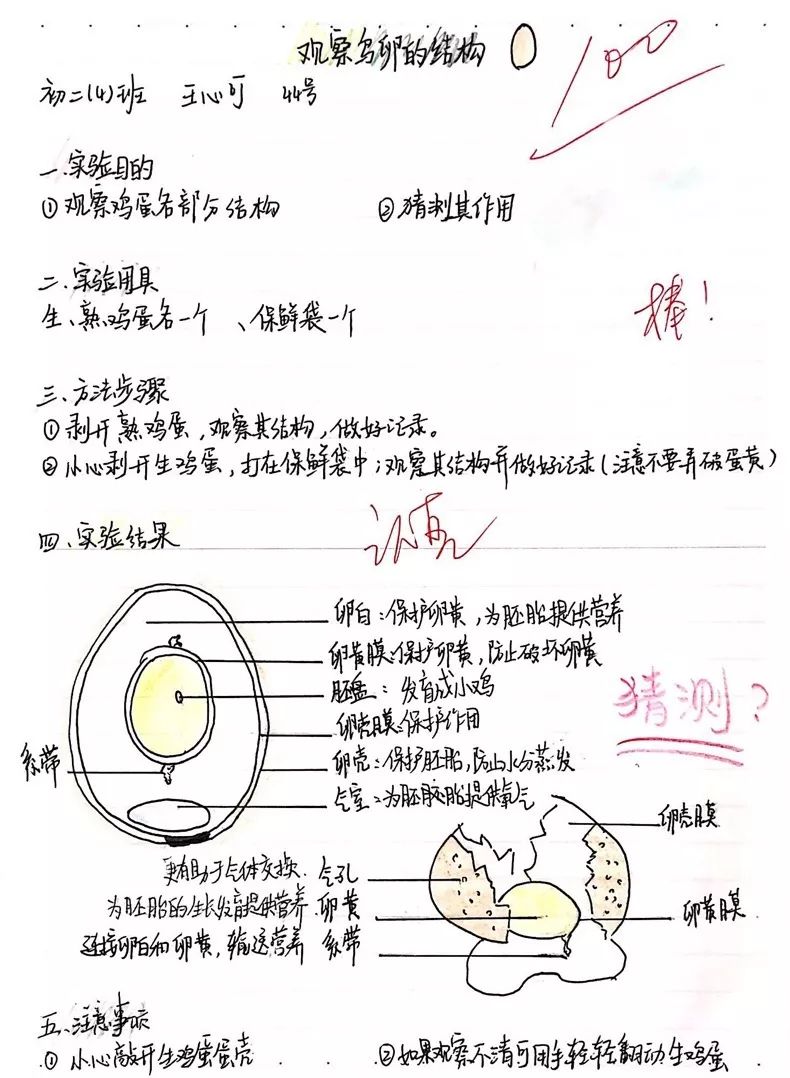 观察鸟卵的结构
100
初二(4)班 王心可 44号
一.实验目的
①观察鸡蛋各部分结构 ②猜测其作用
二.实验用具
生、熟鸡蛋各一个、保鲜袋一个
棒!
三.方法步骤
①剥开熟鸡蛋,观察其结构,做好记录。
②小心剥开生鸡蛋,打在保鲜袋中;观察其结构并做好记录(注意不要弄破蛋黄)
四.实验结果
认真
卵白:保护卵黄,为胚胎提供营养
卵黄膜:保护卵黄,防止破坏卵黄
胚盘:发育成小鸡
猜测?
卵壳膜:保护作用
系带
卵壳:保护胚胎,防止水分蒸发
气室:为胚胎提供氧气
卵壳膜
更有助于气体交换.气孔
为胚胎的生长发育提供营养 卵黄
卵黄膜
连接卵白和卵黄,输送营养 系带
五.注意事项
①小心敲开生鸡蛋蛋壳 ②如果观察不清可用手轻轻翻动生鸡蛋